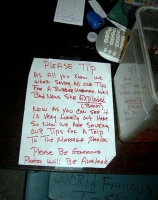 PLEASE TIP
AS ALL YOU KNOW WE
WERE SAVING ALL OUR TIPS
FOR A RUBBER WOMAN. WELL
BAD NEWS SHE EXPLODED
(BOOM)
NOW AS YOU CAN SEE IT
IS VERY LONELY OUT HERE
SO NOW WE ARE SAVING
OUR TIPS FOR A TRIP
TO THE MASSAGE PARLOR
PLEASE BE GENEROUS
PHOTOS WILL BE AVAILABLE